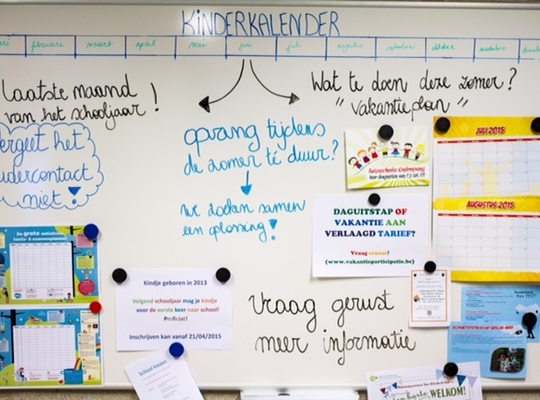 KINDERKALENDER
februari maart april mei juni juli augustus oktober
Laatste maand
van het schooljaar!
ergeet het
oudercontact
niet!
Wat te doen deze zomer?
"vakantieplan"
opvang tijdens
de zomer té duur?
we zoeken samen
een oplossing!
JULI 2015
AUGUSTUS 2015
DAGUITSTAP OF
VAKANTIE AAN
VERLAAGD TARIEF?
Vraag ernaar!
(www.vakantieparticipatie.be)
Kindje geboren in 2013
Volgend schooljaar mag je kindje
voor de eerste keer naar school!
Proficiat!
Inschrijven kan vanaf 21/04/2015
Vraag gerust
meer informatie
De grote
WELKOM!